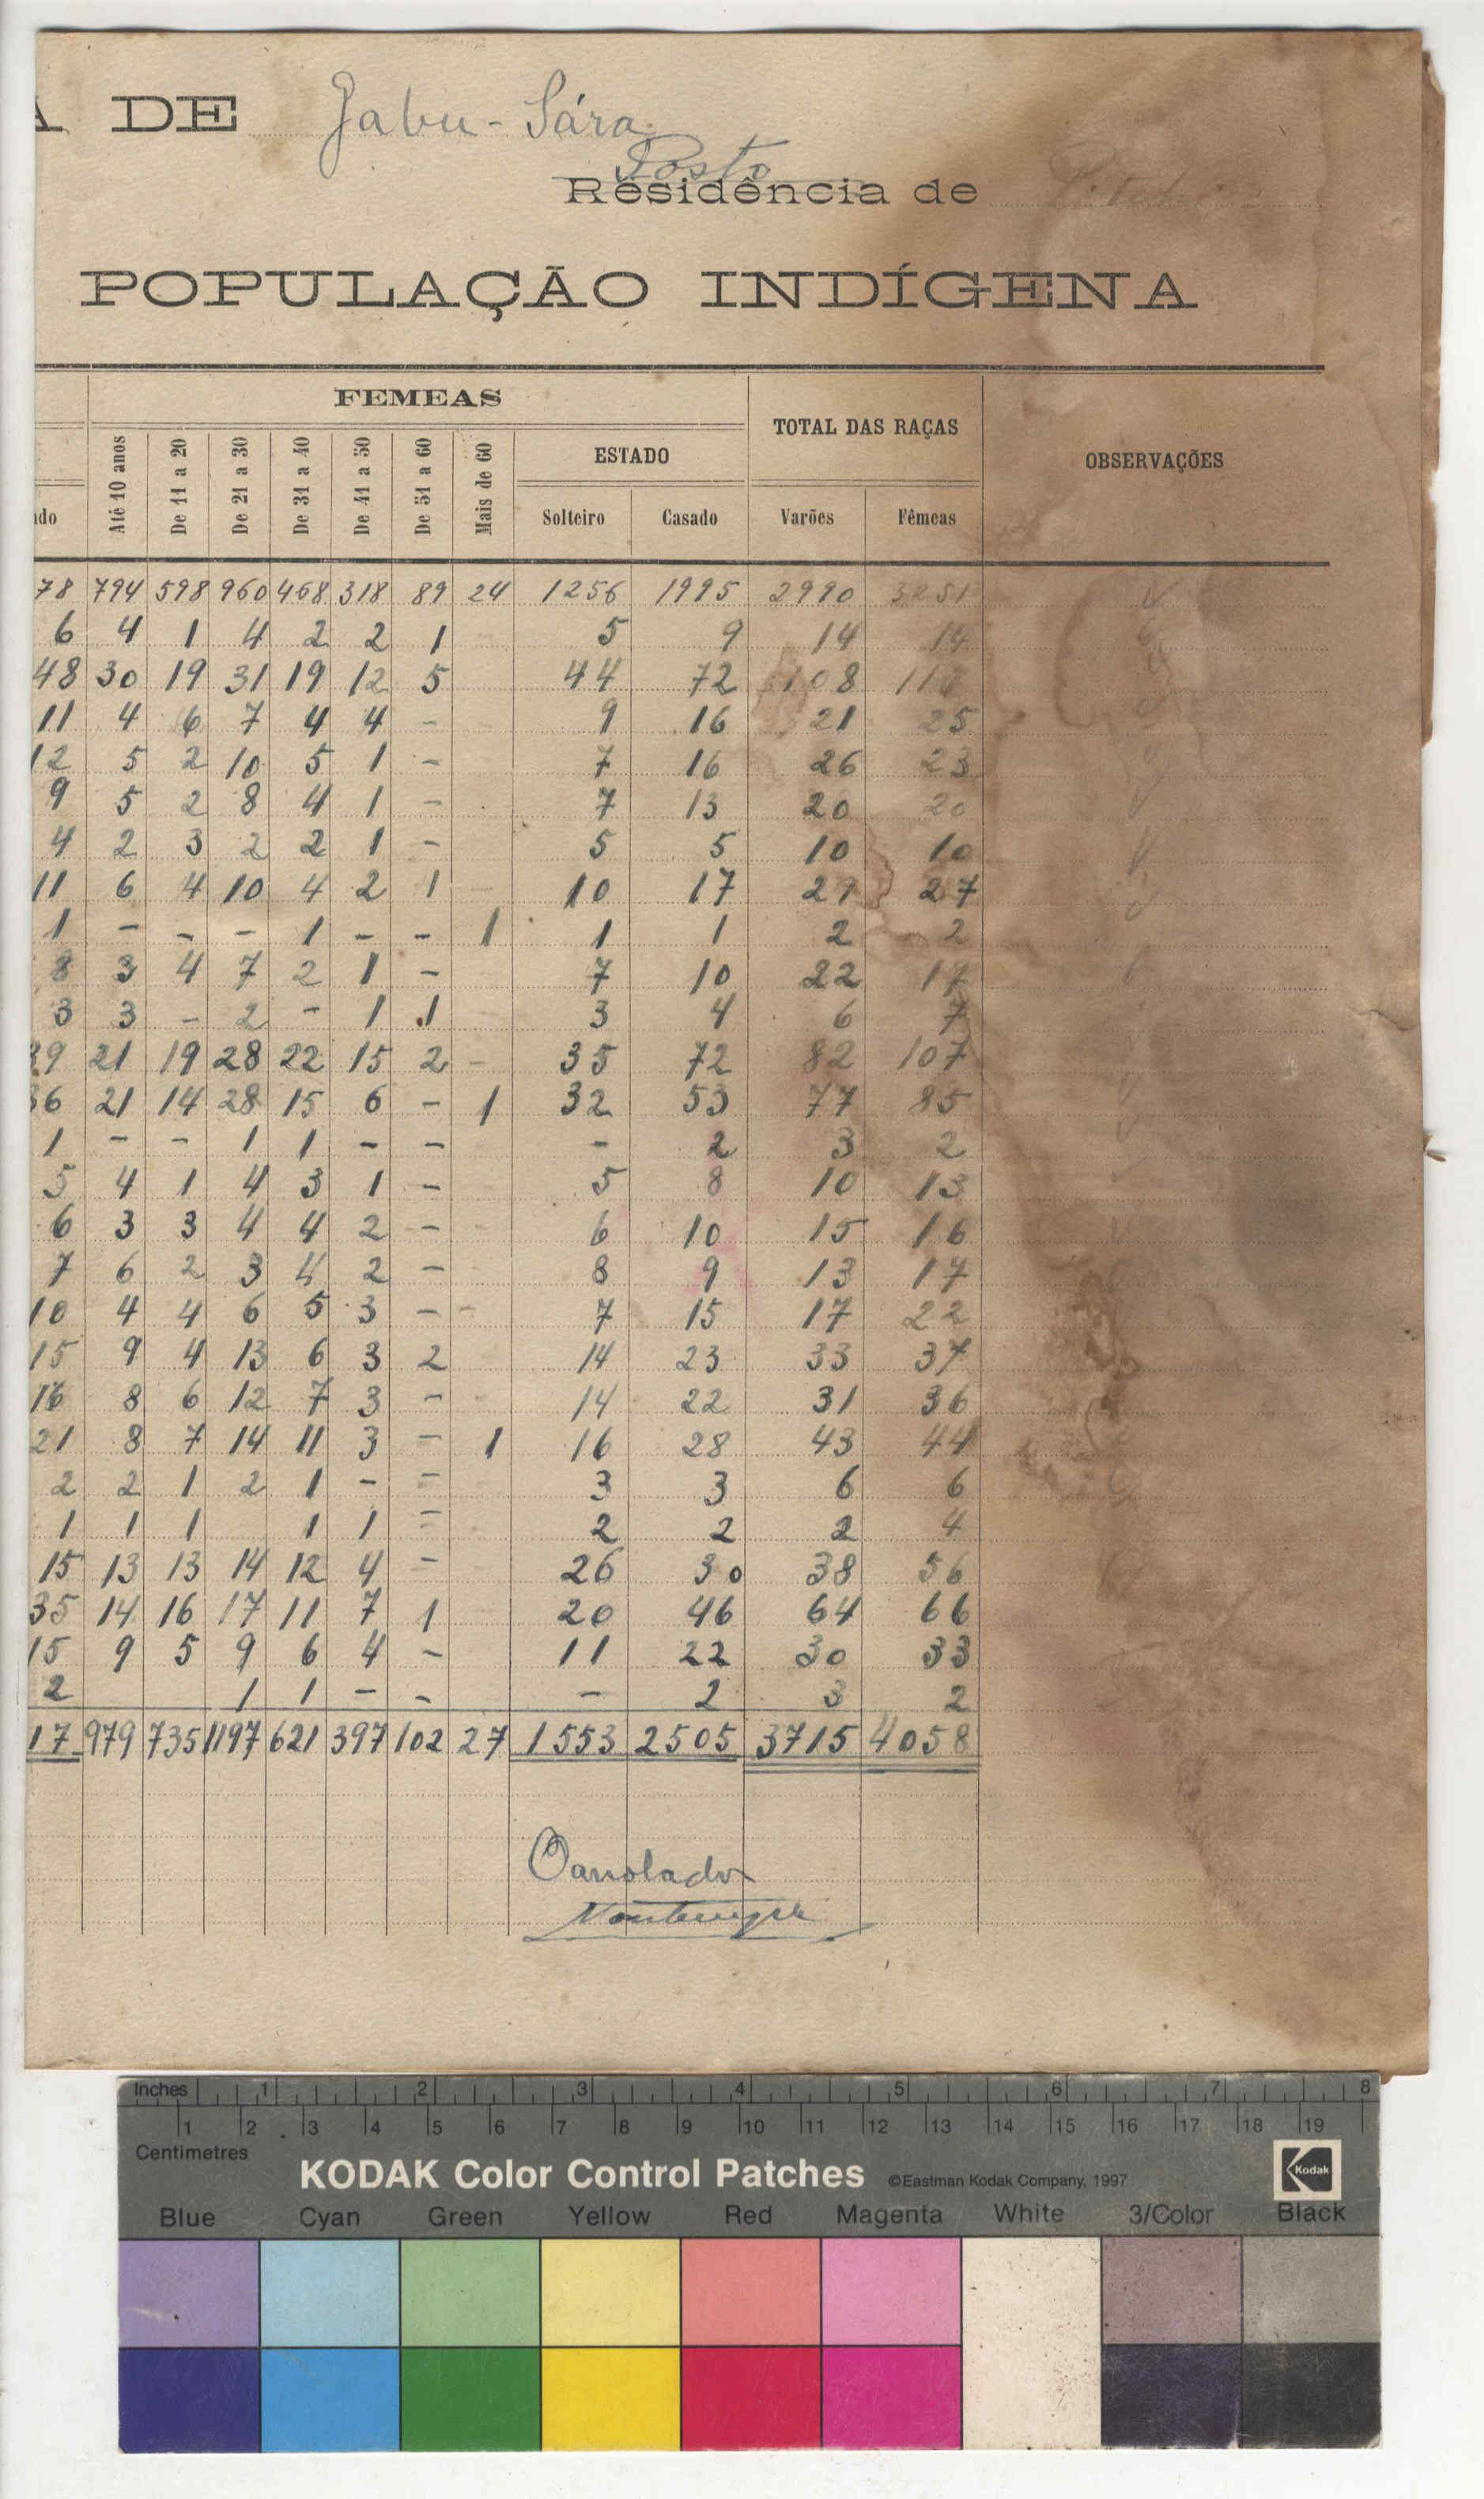 A DE Gabu-Sára
Posto
Residência de
POPULAÇÃO INDÍGENA
FEMEAS
TOTAL DAS RAÇAS
OBSERVAÇÕES
ESTADO
Até 10 anos De 11 a 20 De 21 a 30 De 31 a 40 De 41 a 50 De 51 a 60 Mais de 60
Solteiro Casado Varões Fêmeas
78 794 598 960 468 318 89 24 1256 1995 2990 3251
6 4 1 4 2 2 1 5 9 14 14
48 30 19 31 19 12 5 44 72 108
11 4 6 7 4 4 - 9 16 21 25
12 5 2 10 5 1 - 7 16 26 23
9 5 2 8 4 1 - 7 13 20 20
4 2 3 2 2 1 - 5 5 10 10
11 6 4 10 4 2 1 10 17 27
1 - - - 1 - - 1 1 1 2 2
8 3 4 7 2 1 - 7 10 22 17
3 3 - 2 - 1 1 3 4 6 7
21 19 28 22 15 2 - 35 72 82 107
36 21 14 28 15 6 - 1 32 53 77 85
1 - - 1 1 - - - 2 3 2
5 4 1 4 3 1 - 5 8 10 13
6 3 3 4 4 2 - 6 10 15 16
7 6 2 3 4 2 - 8 9 13 17
10 4 4 6 5 3 - - 7 15 17 22
15 9 4 13 6 3 2 14 23 33 37
16 8 6 12 7 3 - 14 22 31 36
21 8 7 14 11 3 - 1 16 28 43 44
2 2 1 2 1 - - 3 3 6 6
1 1 1 1 1 - 2 2 2 4
15 13 13 14 12 4 - 26 30 38 56
35 14 16 17 11 7 1 20 46 64 66
15 9 5 9 6 4 - 11 22 30 33
2 1 1 - - - 2 3 2
17 979 735 1197 621 397 102 27 1553 2505 3715 4058
O arrolador
Inches 1 2 3 4 5 6 7 8
1 2 3 4 5 6 7 8 9 10 11 12 13 14 15 16 17 18 19
Centimetres
KODAK Color Control Patches ©Eastman Kodak Company, 1997 Kodak
Blue Cyan Green Yellow Red Magenta White 3/Color Black